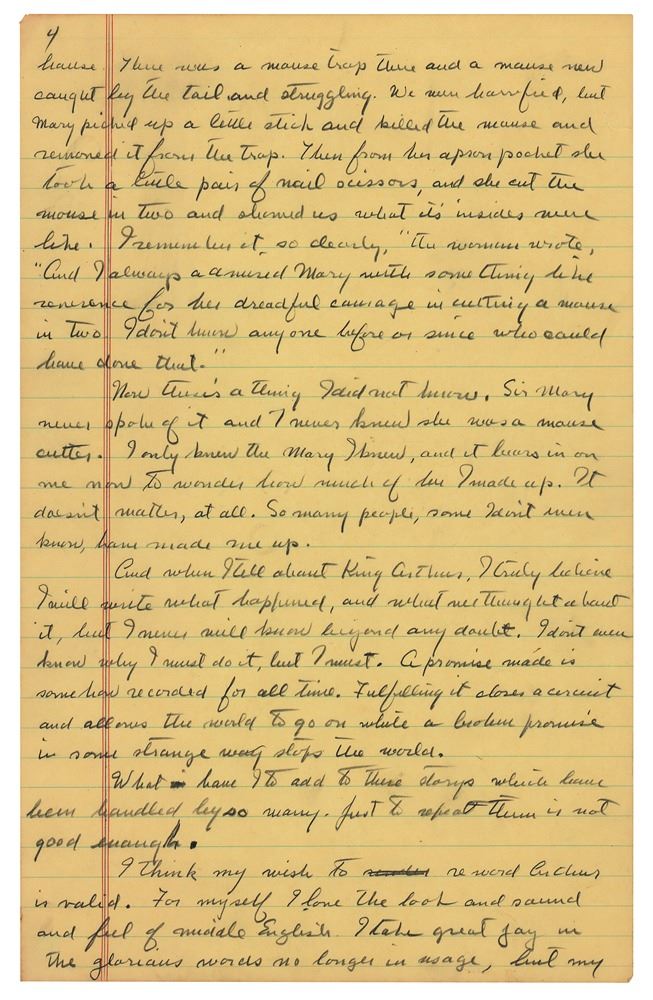 4
house. There was a mouse trap there and a mouse new
caught by the tail and struggling. We were horrified, but
Mary picked up a little stick and killed the mouse and
removed it from the trap. Then from her apron pocket she
took a little pair of nail scissors, and she cut the
mouse in two and showed us what it's insides were
like. I remember it, so clearly," the woman wrote,
"And I always admired Mary with something like
reverence for her dreadful courage in cutting a mouse
in two. I don't know anyone before or since who could
have done that."
Now there's a thing I did not know. Sir Mary
never spoke of it and I never knew she was a mouse
cutter. I only knew the Mary I knew, and it bears in on
me now to wonder how much of her I made up. It
doesn't matter, at all. So many people, some I don't even
know, have made me up.
And when I tell about King Arthur, I truly believe
I will write what happened, and what we thought about
it, but I never will know beyond any doubt. I don't even
know why I must do it, but I must. A promise made is
somehow recorded for all time. Fulfilling it closes a circuit
and allows the world to go on while a broken promise
in some strange way stops the world.
What have I to add to these storys which have
been handled by so many. Just to repeat them is not
good enough.
I think my wish to reword Arthur
is valid. For myself I love the look and sound
and feel of middle English. I take great joy in
the glorious words no longer in usage, but my